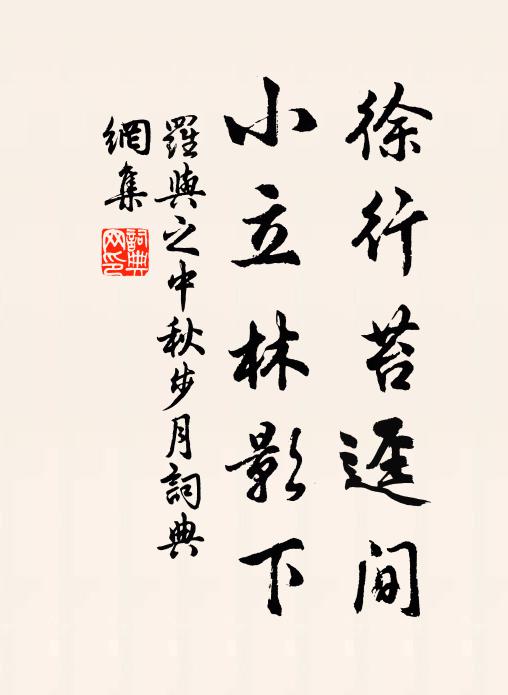 徐行苔逕间
小立林影下
羅與之中秋步月詞典
網集
詞典
网印